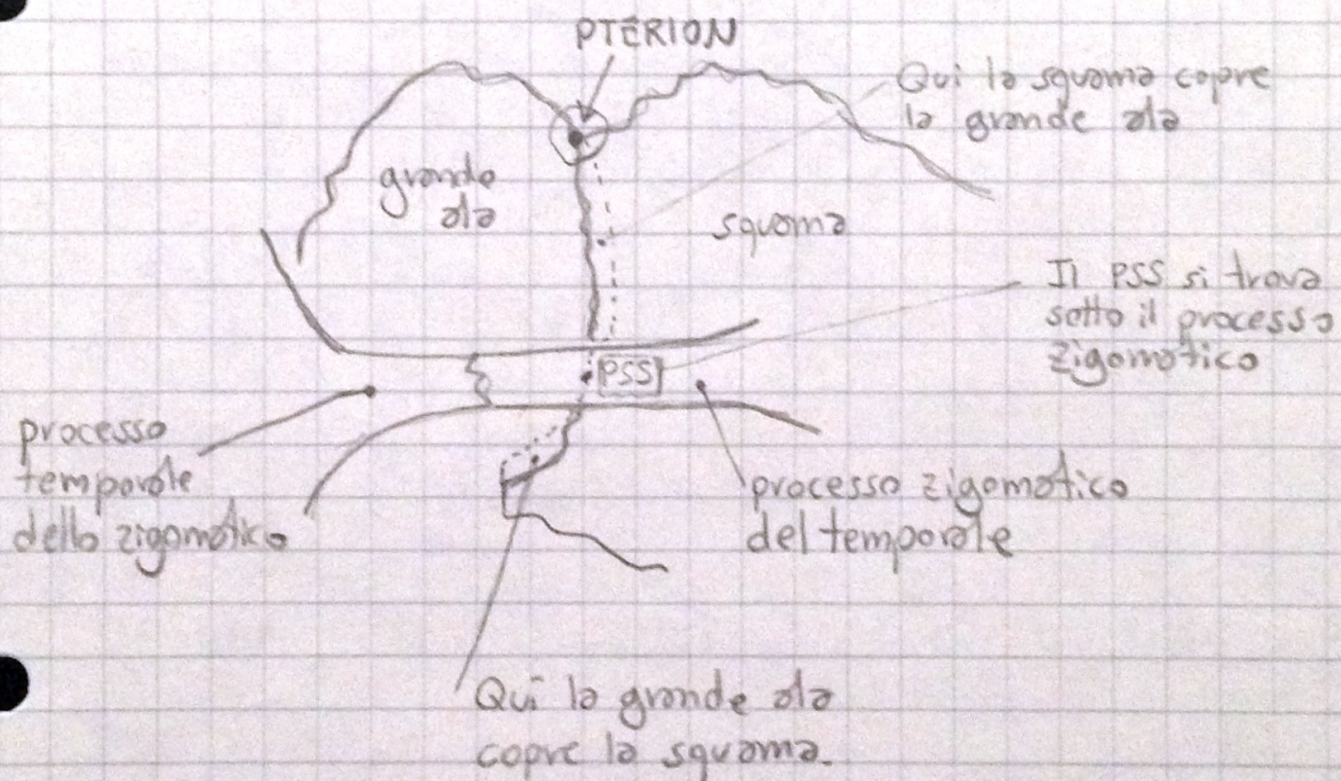 PTERION
Qui la squama copre
la grande ala
grande
ala
squama
Il PSS si trova
sotto il processo
zigomatico
PSS
processo
temporale
dello zigomatico
processo zigomatico
del temporale
Qui la grande ala
copre la squama.